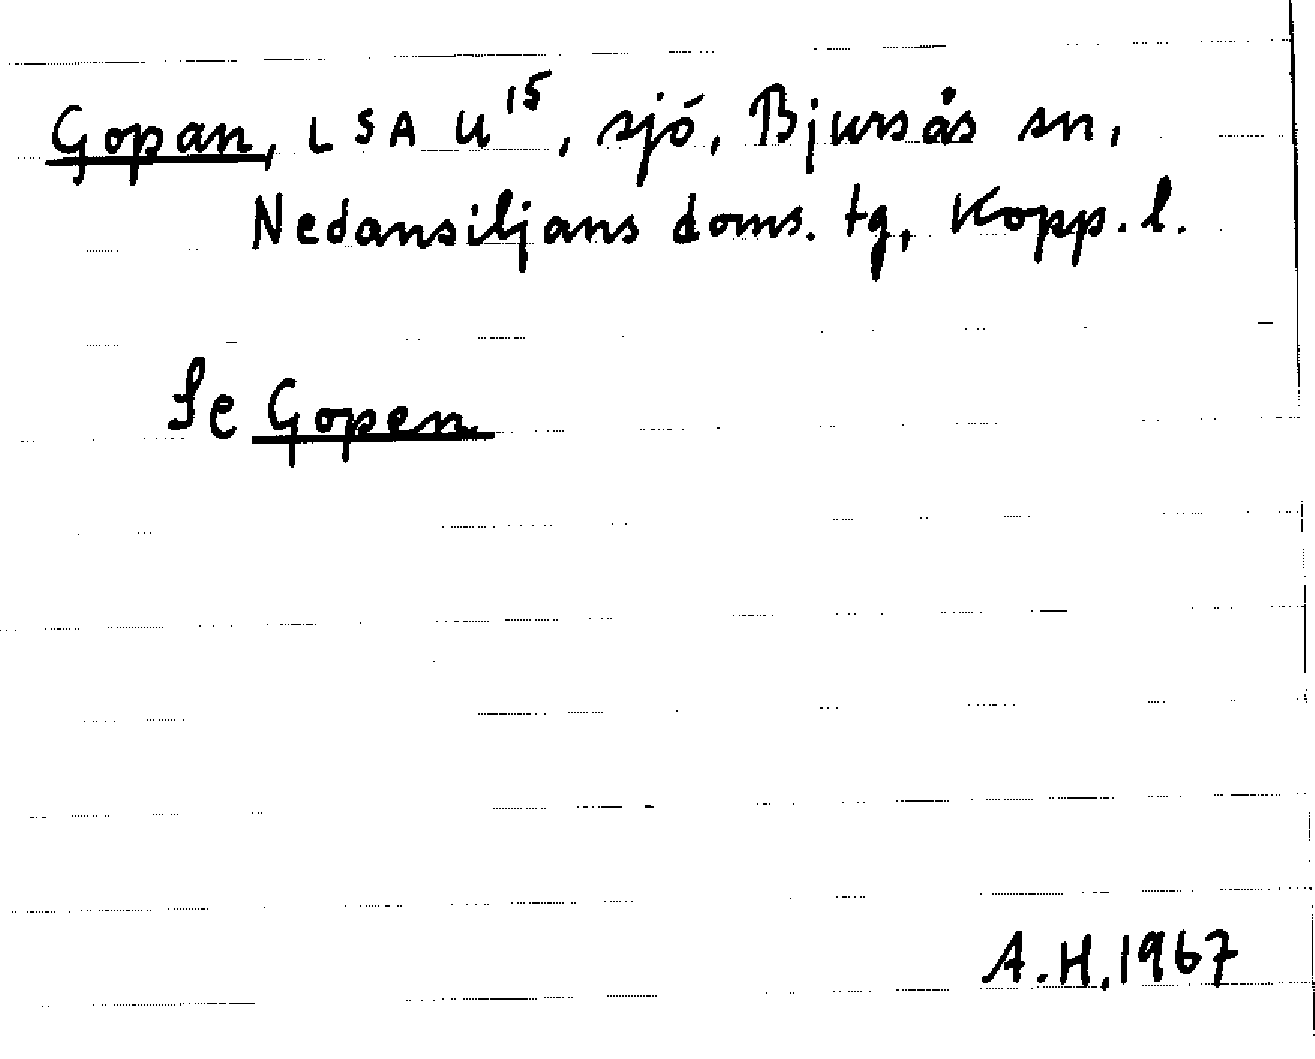 Gopan, LSA U¹⁵, sjö, Bjursås sn,
Nedansiljans doms. tg, Kopp. l.
Se Gopen
A.H. 1967